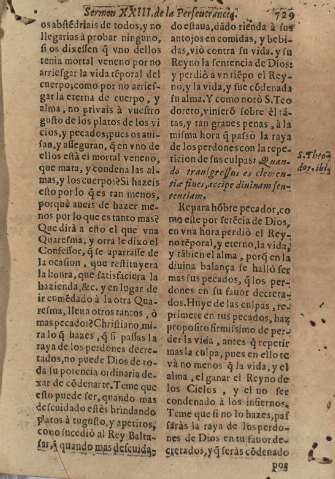 Sermon XXIII. de la Perseuerancia. 729
os abstēdriais de todos, y no
llegarias a probar ninguno,
si os dixessen q̃ vno dellos
tenia mortal veneno por no
arriesgar la vida tēporal del
cuerpo; como por no arries-
gar la eterna de cuerpo, y
alma, no priuais à vuestro
gusto de los platos de los vi
cios, y pecados; pues os auí-
san, y asseguran, q̃ en vno de
ellos està el mortal veneno,
que mata, y condena las al-
mas, y los cuerpos? Si hazeis
esto por lo q̃ es ran menos,
porquè aueis de hazer me-
nos por lo que es tanto mas?
Que dirà a esto el que vna
Quaresma, y otra le dixo el
Confessor, q̃ se apartasse de
la ocasion, que restituyera
la honra, que satisfaciera la
hazienda, &c. y en lugar de
ir comēdado à la otra Qua-
resma, lleua otros tantos, ò
mas pecados? Christiano mi-
ra lo q̃ hazes, q̃ si passas la
raya de los perdones decre-
tados, no puede Dios de to-
da su potencia ordinaria de-
xar de cōdenarte. Teme que
esto puede ser, quando mas
descuidado estès brindando
platos à tu gusto, y apetitos,
como sucediò al Rey Balta-
sar, q̃ quando mas descuida-
do estaua, dādo rienda à sus
antojos en comidas, y bebi-
das, viò contra su vida, y su
Reyno la sentencia de Dios:
y perdiò a vn tiēpo el Rey-
no, y la vida, y fue cōdenada
su alma. Y como notò S. Teo
doreto, vinierō sobre èl tā-
tas, y tan graues penas, à la
misma hora q̃ passò la raya
de los perdones con la repe-
ticion de sus culpas: Quan-
do transgressus es clemen-
tiæ fines, accipe diuinam sen-
tentiam.
S. Theo
dor. ibi.
Repara hōbre pecador, co
mo este por sentēcia de Dios,
en vna hora perdiò el Rey-
no tēporal, y eterno, la vida,
y tābien el alma, porq̃ en la
diuina balança se hallò ser
mas sus pecados, q̃ los per-
dones en su fauor decreta-
dos. Huye de las culpas, re-
primete en tus pecados, haz
proposito firmissimo de per-
der la vida, antes q̃ repetir
mas la culpa, pues en ello te
và no menos q̃ la vida, y el
alma, el ganar el Reyno de
los Cielos, y el no ser
condenado à los infiernos.
Teme que si no lo hazes, pas
saràs la raya de los perdo-
nes de Dios en tu fauor de-
cretados, y q̃ seràs cōdenado
por